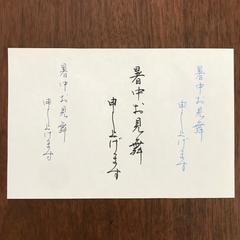 暑中お見舞
申し上げます
暑中お見舞
申し上げます
暑中お見舞
申し上げます